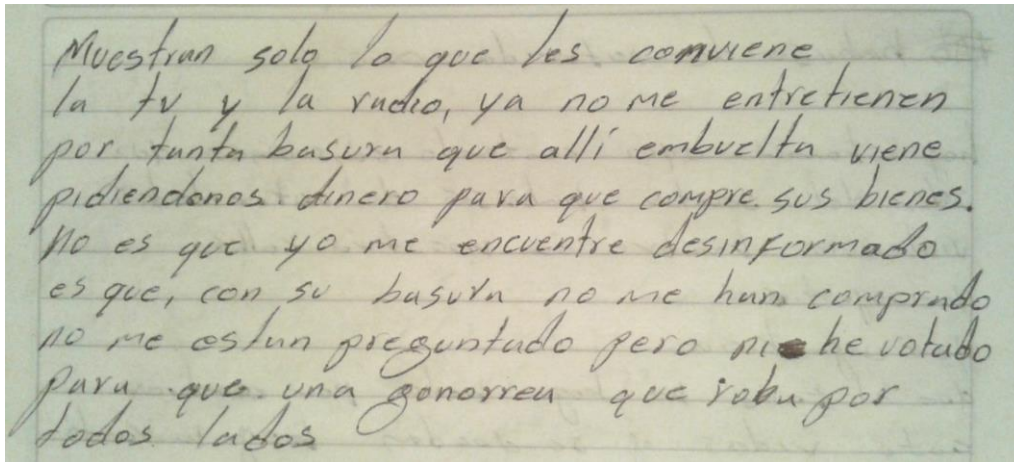 Muestran solo lo que les conviene
la tv y la radio, ya no me entretienen
por tanta basura que alli embuelta viene
pidiendonos dinero para que compre sus bienes.
No es que yo me encuentre desinformado
es que, con su basura no me han comprado
no me estan preguntado pero ni he votado
para que una gonorrea que roba por
todos lados